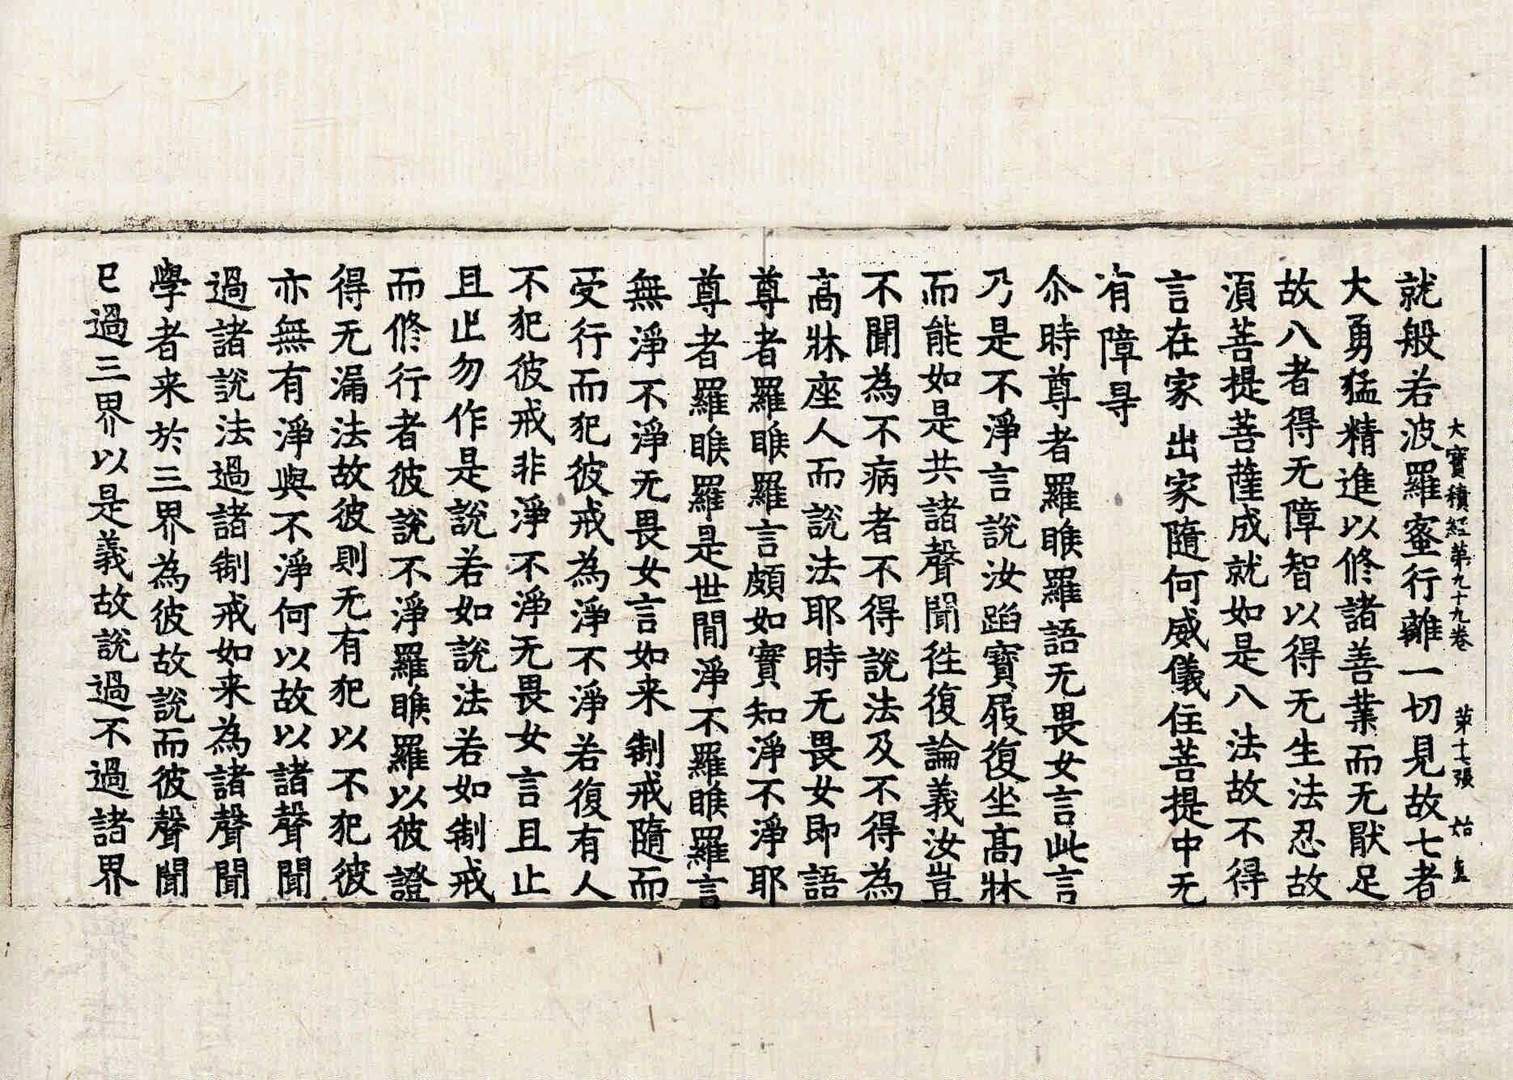 大寶積經第九十九卷 第十七張 始 盖
就般若波羅蜜行離一切見故七者
大勇猛精進以修諸善業而无猒足
故八者得无障智以得无生法忍故
湏菩提菩薩成就如是八法故不得
言在家出家隨何威儀住菩提中无
有障㝵
尒時尊者羅睺羅語无畏女言此言
乃是不淨言說汝蹈寶屐復坐高牀
而能如是共諸聲聞徃復論義汝豈
不聞為不病者不得說法及不得為
高牀座人而說法耶時无畏女即語
尊者羅睺羅言頗如實知淨不淨耶
尊者羅睺羅是世閒淨不羅睺羅言
無淨不淨无畏女言如来制戒隨而
受行而犯彼戒為淨不淨若復有人
不犯彼戒非淨不淨无畏女言且止
且止勿作是說若如說法若如制戒
而修行者彼說不淨羅睺羅以彼證
得无漏法故彼則无有犯以不犯彼
亦無有淨與不淨何以故以諸聲聞
過諸說法過諸制戒如来為諸聲聞
學者来於三界為彼故說而彼聲聞
已過三界以是義故說過不過諸界